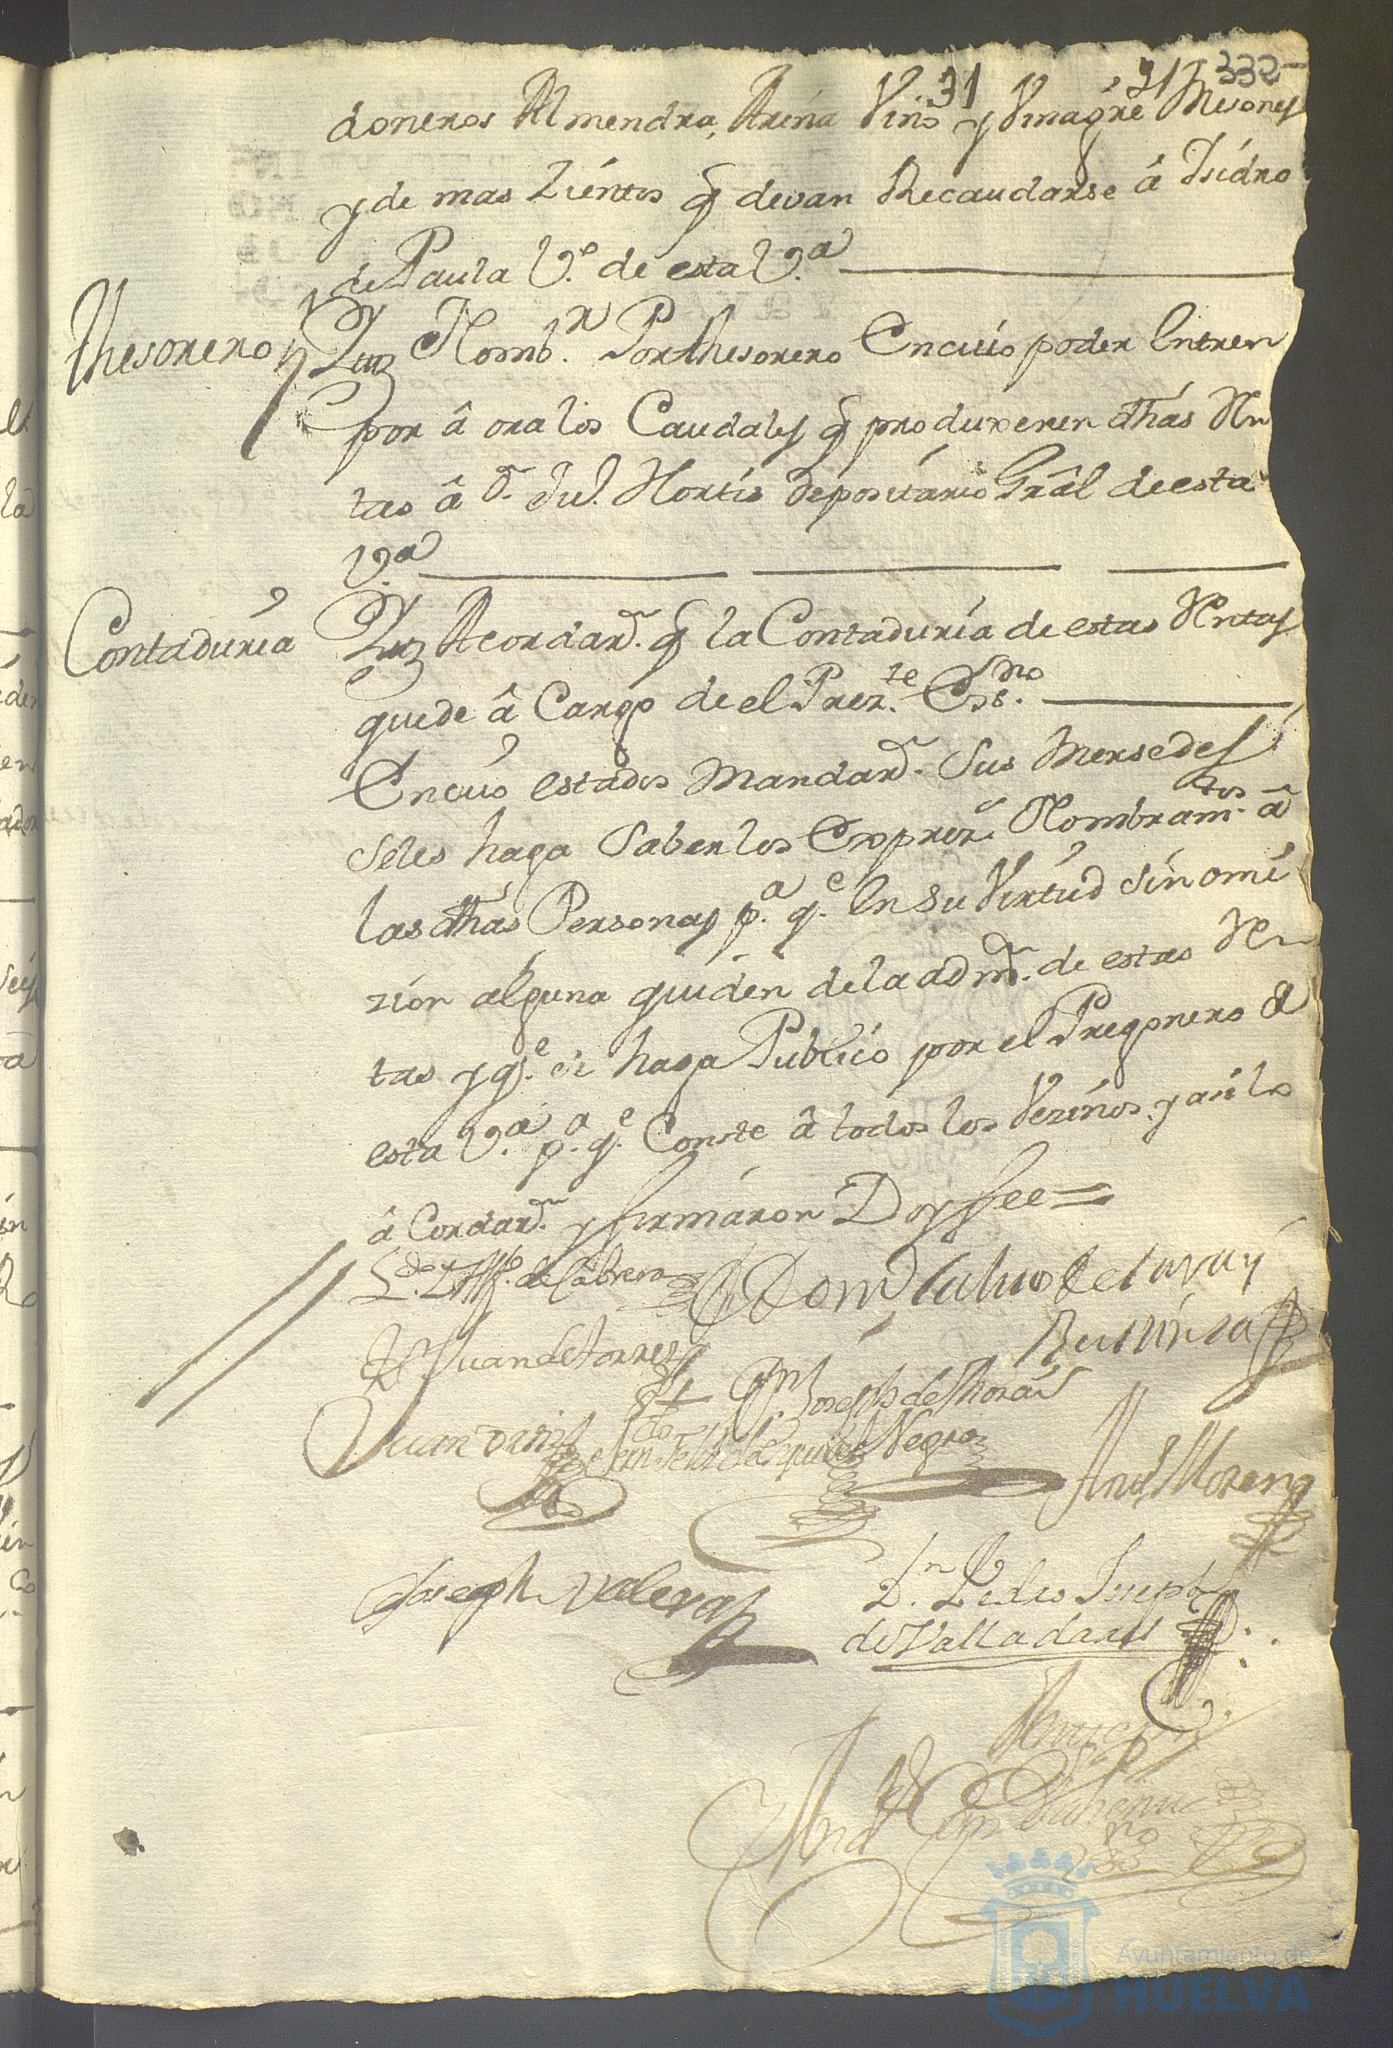 31 31 332
doneros Almendra, Arina Vino y Vinagre Mesones
y de mas Zientos q devan Recaudarse â Isidro
de Paula V.º de esta V.ª
Thesorero
Nomb.n Por thesorero En cuio poder Entren
por â ora los Caudales q produxeren dhas Rn
tas â D.n Ju.º Hortis depositario Grâl de esta
V.ª
Contaduria
Acordar.n q la Contaduria de estas Rentas
quede â Cargo de el Prez.te Ess.no
En cuio estados Mandar.n Sus Mersedes
seles haga Saber los Exprez.s Nombram.tos â
las dhas Personas p.a q.e En su Virtud sin omi
zion alguna quiden de la adm.n de estas Rn
tas y q.e se haga Publico por el Pregonero de
esta V.a p.a q.e Conste â todos los Vezinos y asi lo
â Cordar.n y firmaron Doy fee =
L.do D. Alf.o de Cabrera
Juan de torres
D.n Joseph de Mora
Juan
Negro
And.s Moreno
Joseph Valera
D.n Pedro Joseph
de Valladares
Ayuntamiento de
HUELVA